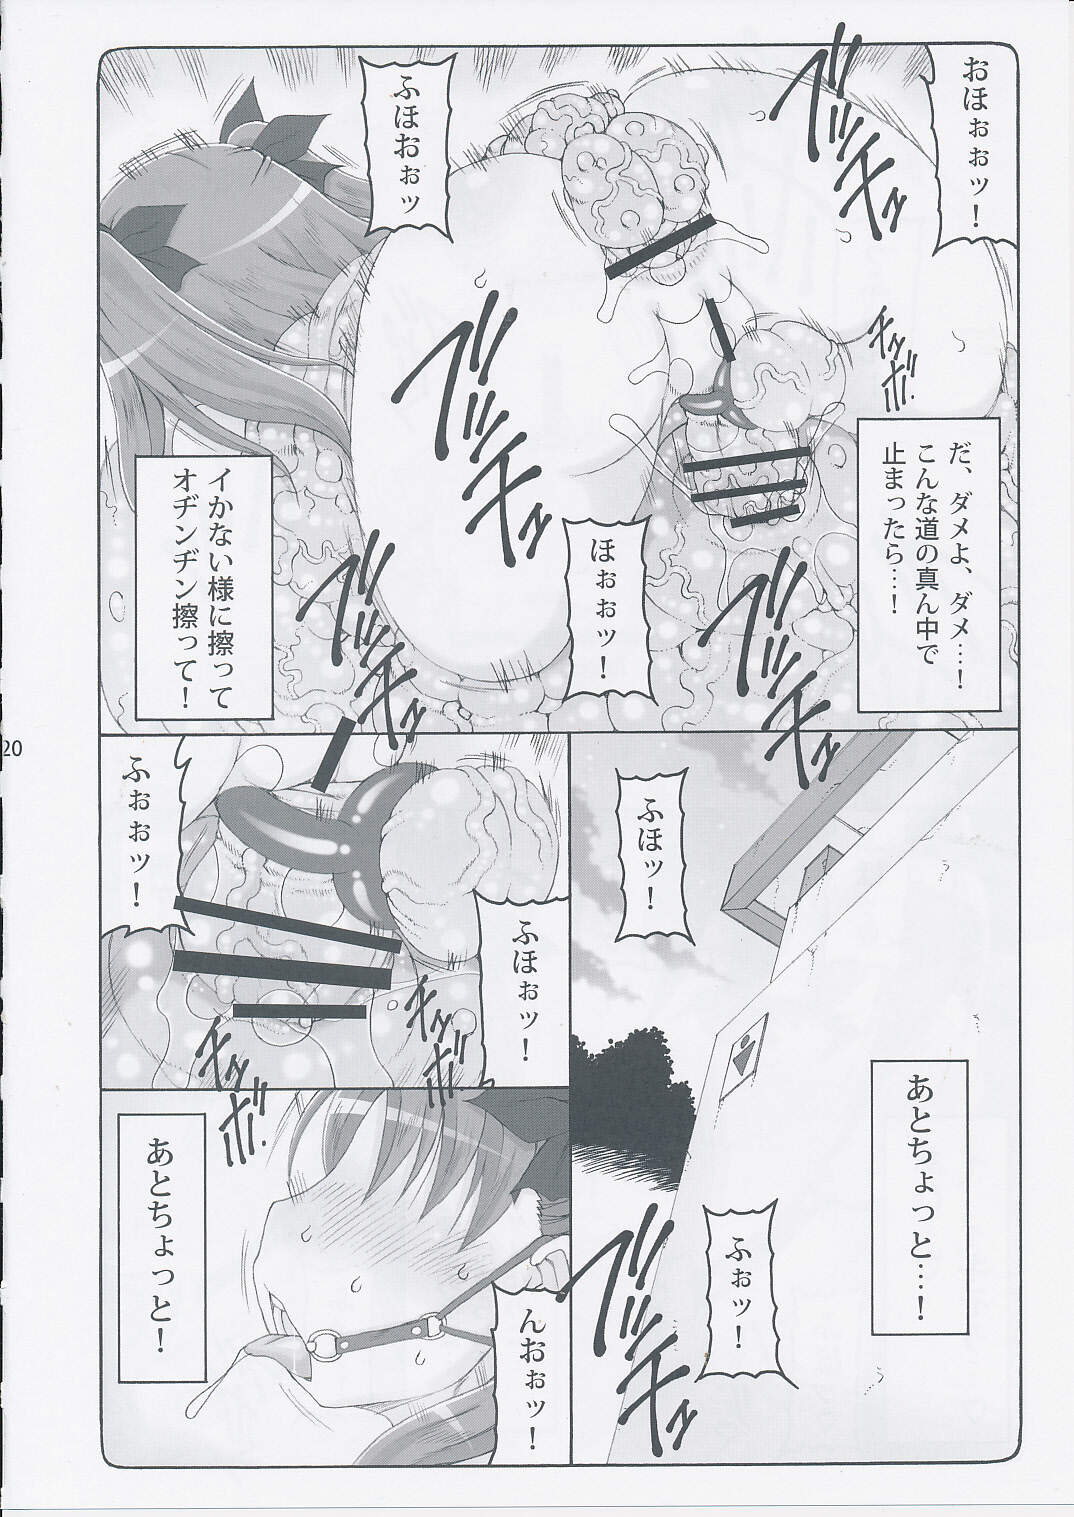 おほぉぉッ！
ブッ
チュッ
ふほおぉッ
チュッ
ボ!!
だ、ダメよ、ダメ…！
こんな道の真ん中で
止まったら…！
ブッ
チュッ
ほぉぉッ！
ブッ
チュッ
イかない様に擦って
オヂンヂン擦って！
ブッ
チュッ
ふほッ！
あとちょっと…！
ふぉッ！
ブッ
チュッ
ふぉぉッ！
ふほぉッ！
チュッ
ボ!!
チュッ
ボ!!
んおぉッ！
あとちょっと！
20